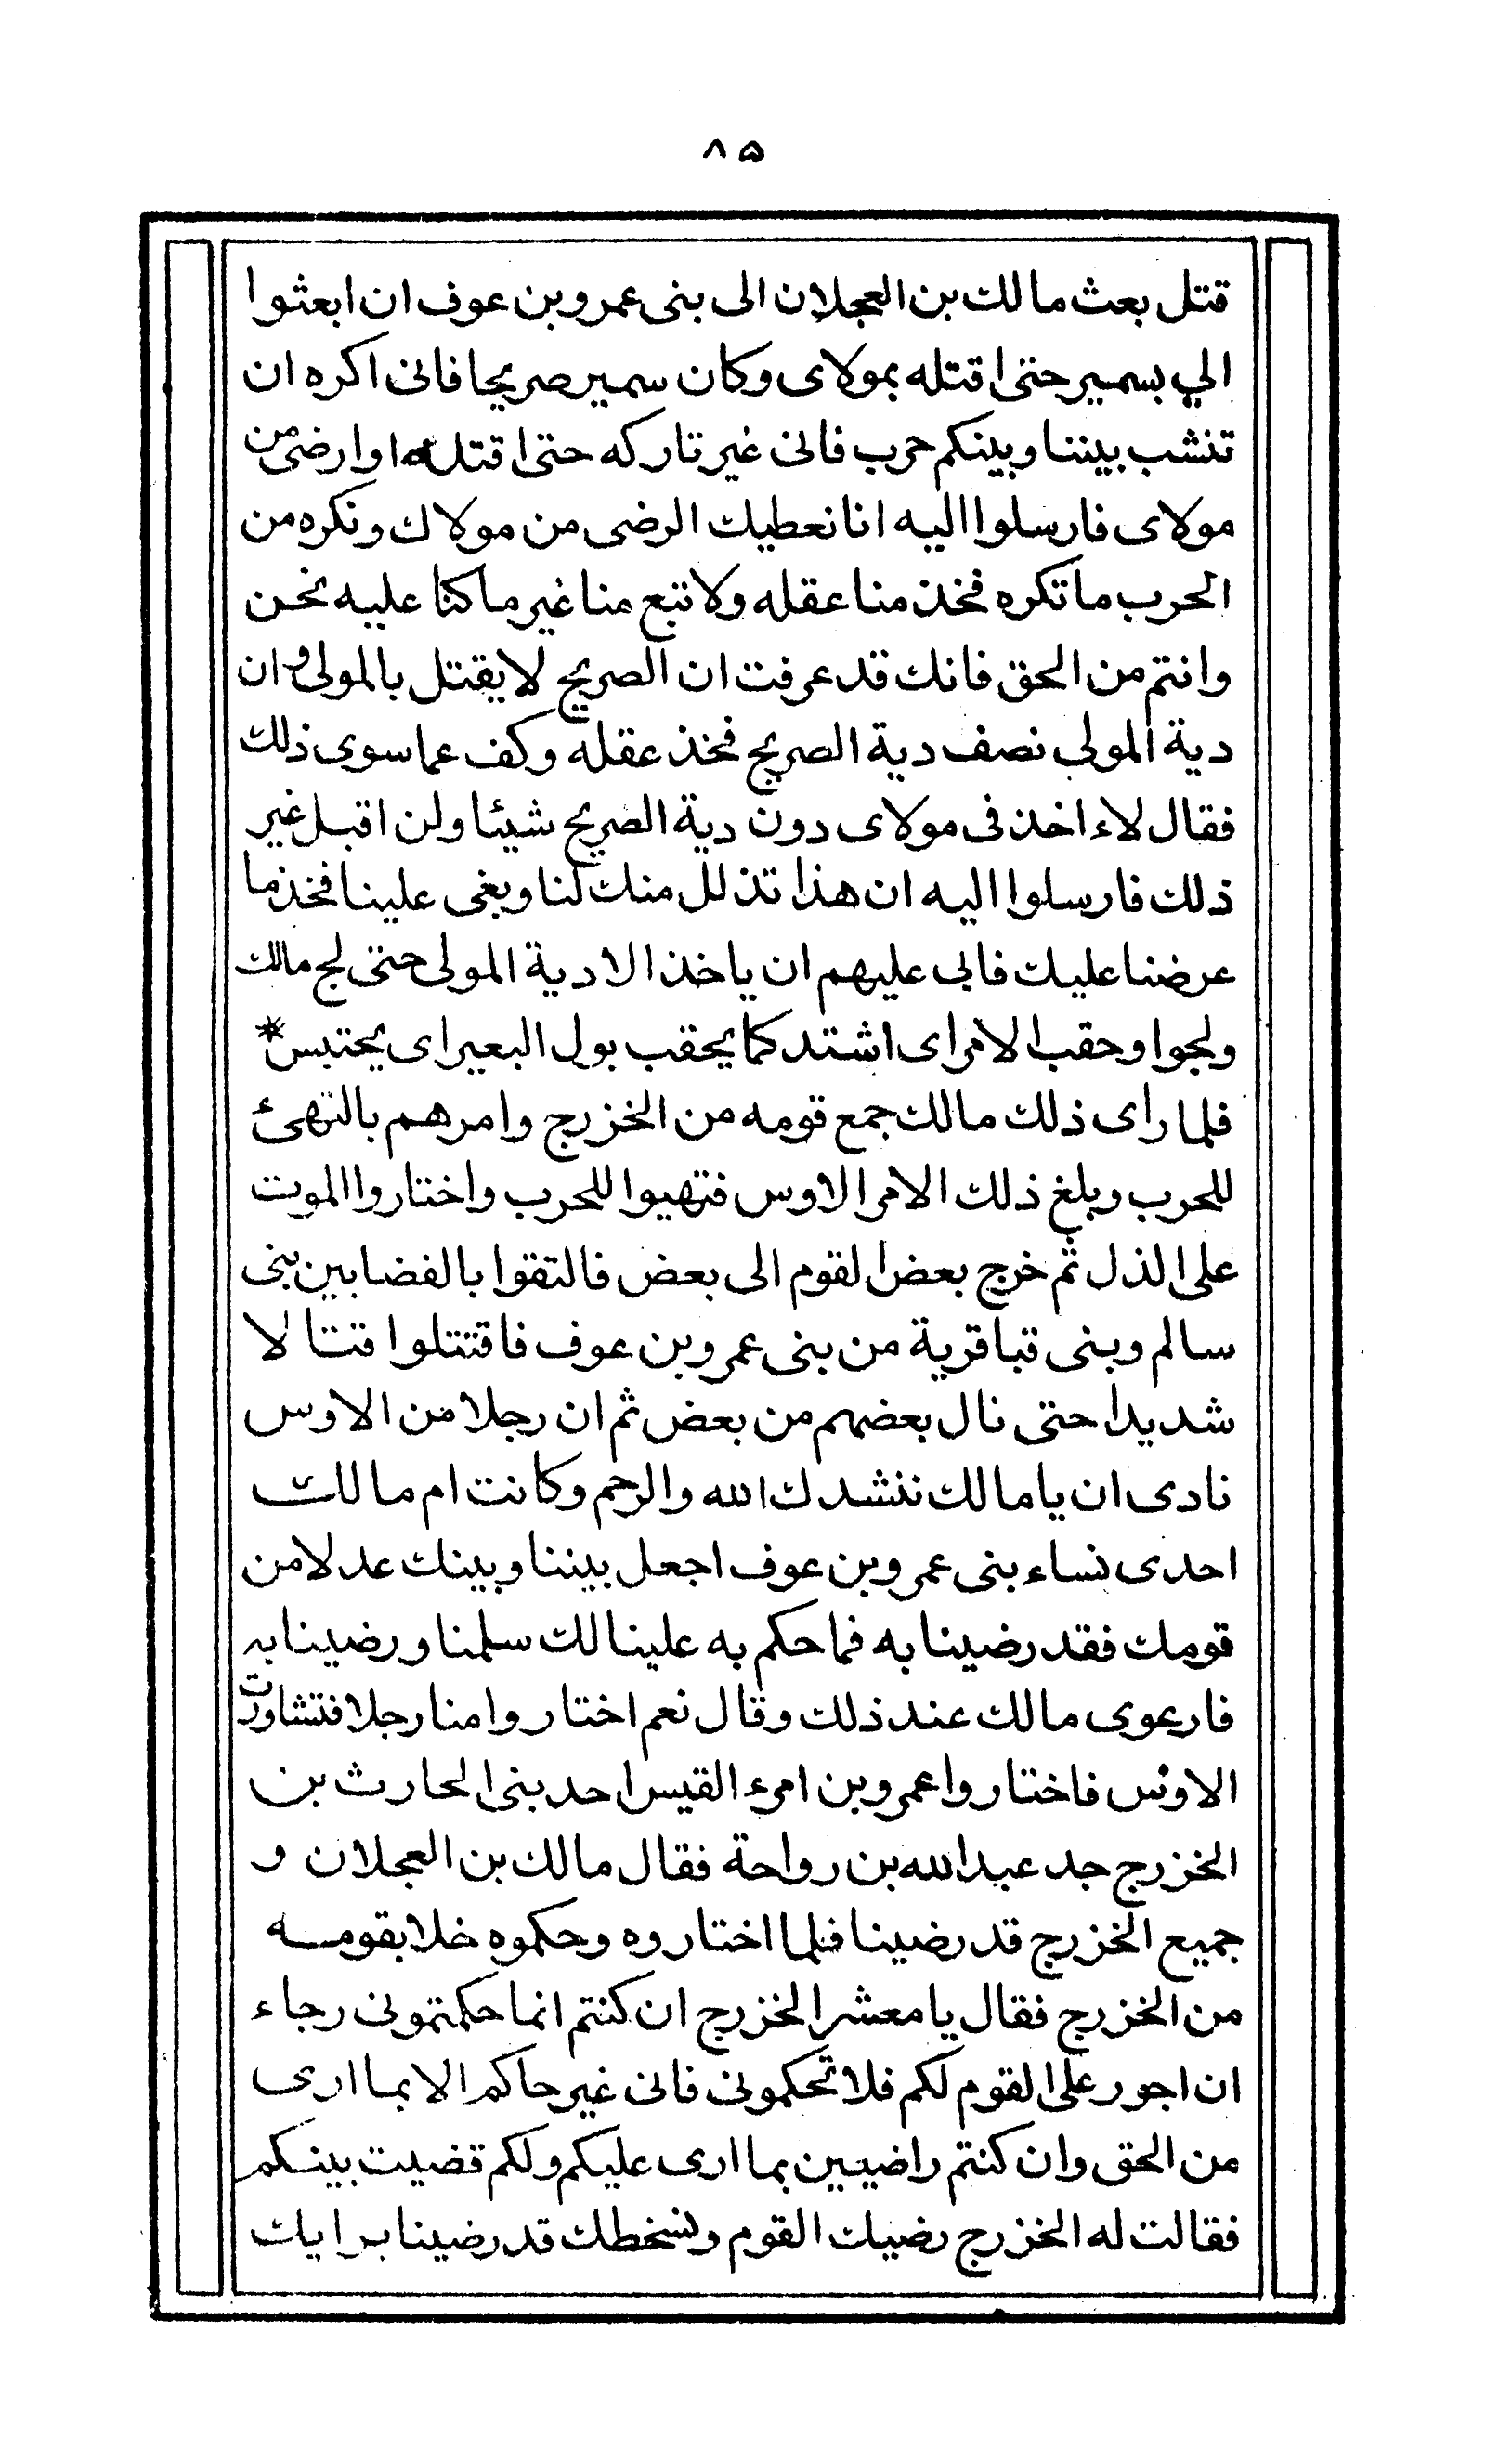 ٨٥
قتل بعث مالك بن العجلان الى بنى عمرو بن عوف ان ابعثوا
الي بسمير حتى اقتله بمولاى وكان سمير صريحا فانى اكره ان
تنشب بيننا وبينكم حرب فانى غير تاركه حتى اقتله او ارضى من
مولاى فارسلوا اليه انا نعطيك الرضى من مولاك ونكره من
الحرب ما تكره فخذ منا عقله ولا تتبع منا غير ما كنا عليه نحن
وانتم من الحق فانك قد عرفت ان الصريح لا يقتل بالمولى وان
دية المولى نصف دية الصريح فخذ عقله وكف عما سوى ذلك
فقال لا ءاخذ فى مولاى دون دية الصريح شيئا ولن اقبل غير
ذلك فارسلوا اليه ان هذا تذلل منك لنا وبغى علينا فخذ ما
عرضنا عليك فابى عليهم ان ياخذ الا دية المولى حتى لج مالك
ولجوا وحقب الامر اى اشتد كما يحقب بول البعير اى يحتبس *
فلما راى ذلك مالك جمع قومه من الخزرج وامرهم بالتهئ
للحرب وبلغ ذلك الامر الاوس فتهيوا للحرب واختاروا الموت
على الذل ثم خرج بعض القوم الى بعض فالتقوا بالفضا بين بنى
سالم وبنى قبا قرية من بنى عمرو بن عوف فاقتتلوا قتالا
شديدا حتى نال بعضهم من بعض ثم ان رجلا من الاوس
نادى ان يا مالك ننشدك الله والرحم وكانت ام مالك
احدى نساء بنى عمرو بن عوف اجعل بيننا وبينك عدلا من
قومك فقد رضينا به فما حكم به علينا لك سلمنا ورضينا به
فارعوى مالك عند ذلك وقال نعم اختاروا منا رجلا فتشاورت
الاوس فاختاروا عمرو بن امرء القيس احد بنى الحارث بن
الخزرج جد عبد الله بن رواحة فقال مالك بن العجلان و
جميع الخزرج قد رضينا فلما اختاروه وحكموه خلا بقومه
من الخزرج فقال يا معشر الخزرج ان كنتم انما حكمتمونى رجاء
ان اجور على القوم لكم فلا تحكمونى فانى غير حاكم الا بما ارى
من الحق وان كنتم راضيين بما ارى عليكم ولكم قضيت بينكم
فقالت له الخزرج رضيك القوم ونسخطك قد رضينا برايك